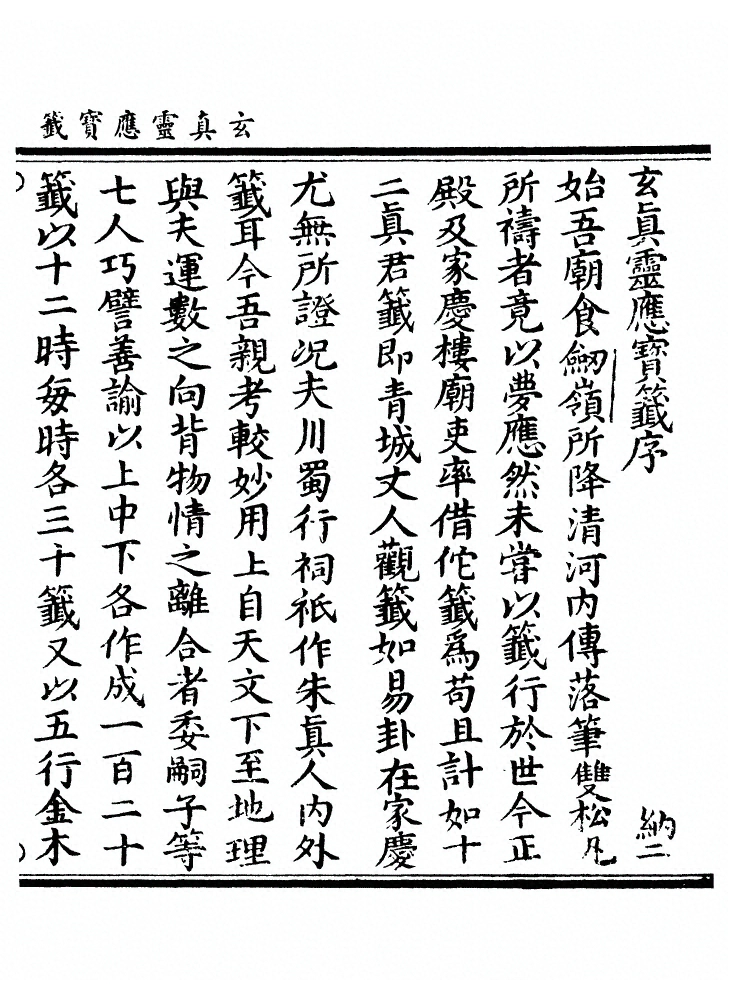 玄真靈應寶籤
玄眞靈應寶籤序
納二
始吾廟食劒嶺所降清河内傳落筆雙松凡
所禱者竟以夢應然未甞以籤行於世今正
殿及家慶樓廟吏率借佗籤爲苟且計如十
二眞君籤即青城丈人觀籤如易卦在家慶
尤無所證况夫川蜀行祠祇作朱眞人内外
籤耳今吾親考較妙用上自天文下至地理
與夫運數之向背物情之離合者委嗣子等
七人巧譬善諭以上中下各作成一百二十
籤以十二時每時各三十籤又以五行金木